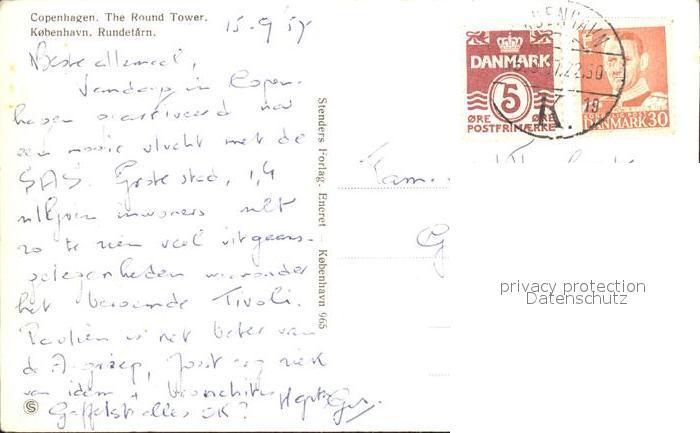 Copenhagen. The Round Tower.
København. Rundetårn.
15.9.57
Beste allemaal,
Vandaag in Copen-
hagen gearriveerd na
een mooie vlucht met de
SAS. Grote stad, 1,4
miljoen inwoners met
zo te zien veel uitgaans-
gelegenheden waaronder
het beroemde Tivoli.
Paulien is net beter van
de A-griep, Joost nog ziek
van idem + bronchitis
alles OK?
Stenders Forlag. Eneret — København 965
DANMARK
5
ØRE ØRE
POSTFRIMÆRKE
KØBENHAVN
K.
19
DANMARK 30
Fam.
privacy protection
Datenschutz